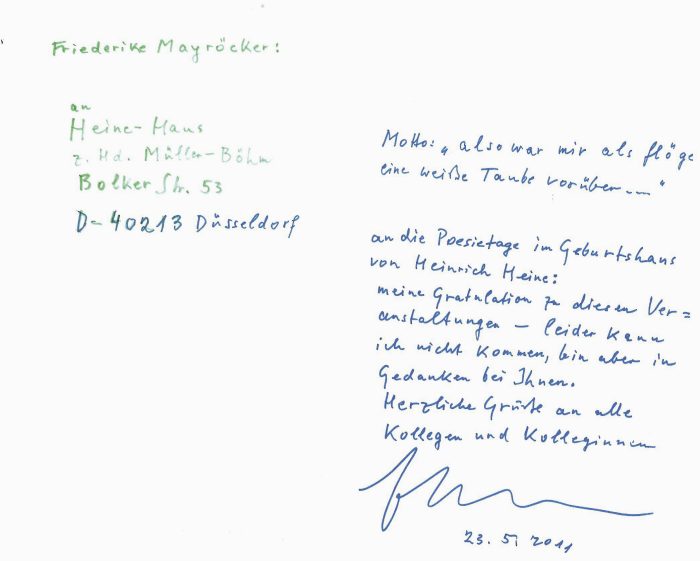 Friederike Mayröcker:
an
Heine-Haus
z. Hd. Müller-Böhm
Bolker Str. 53
D-40213 Düsseldorf
Motto: „also war mir als flöge
eine weiße Taube vorüber ...."
an die Poesietage im Geburtshaus
von Heinrich Heine:
meine Gratulation zu diesen Ver=
anstaltungen – leider kann
ich nicht kommen, bin aber in
Gedanken bei Ihnen.
Herzliche Grüße an alle
Kollegen und Kolleginnen
23. 5. 2011